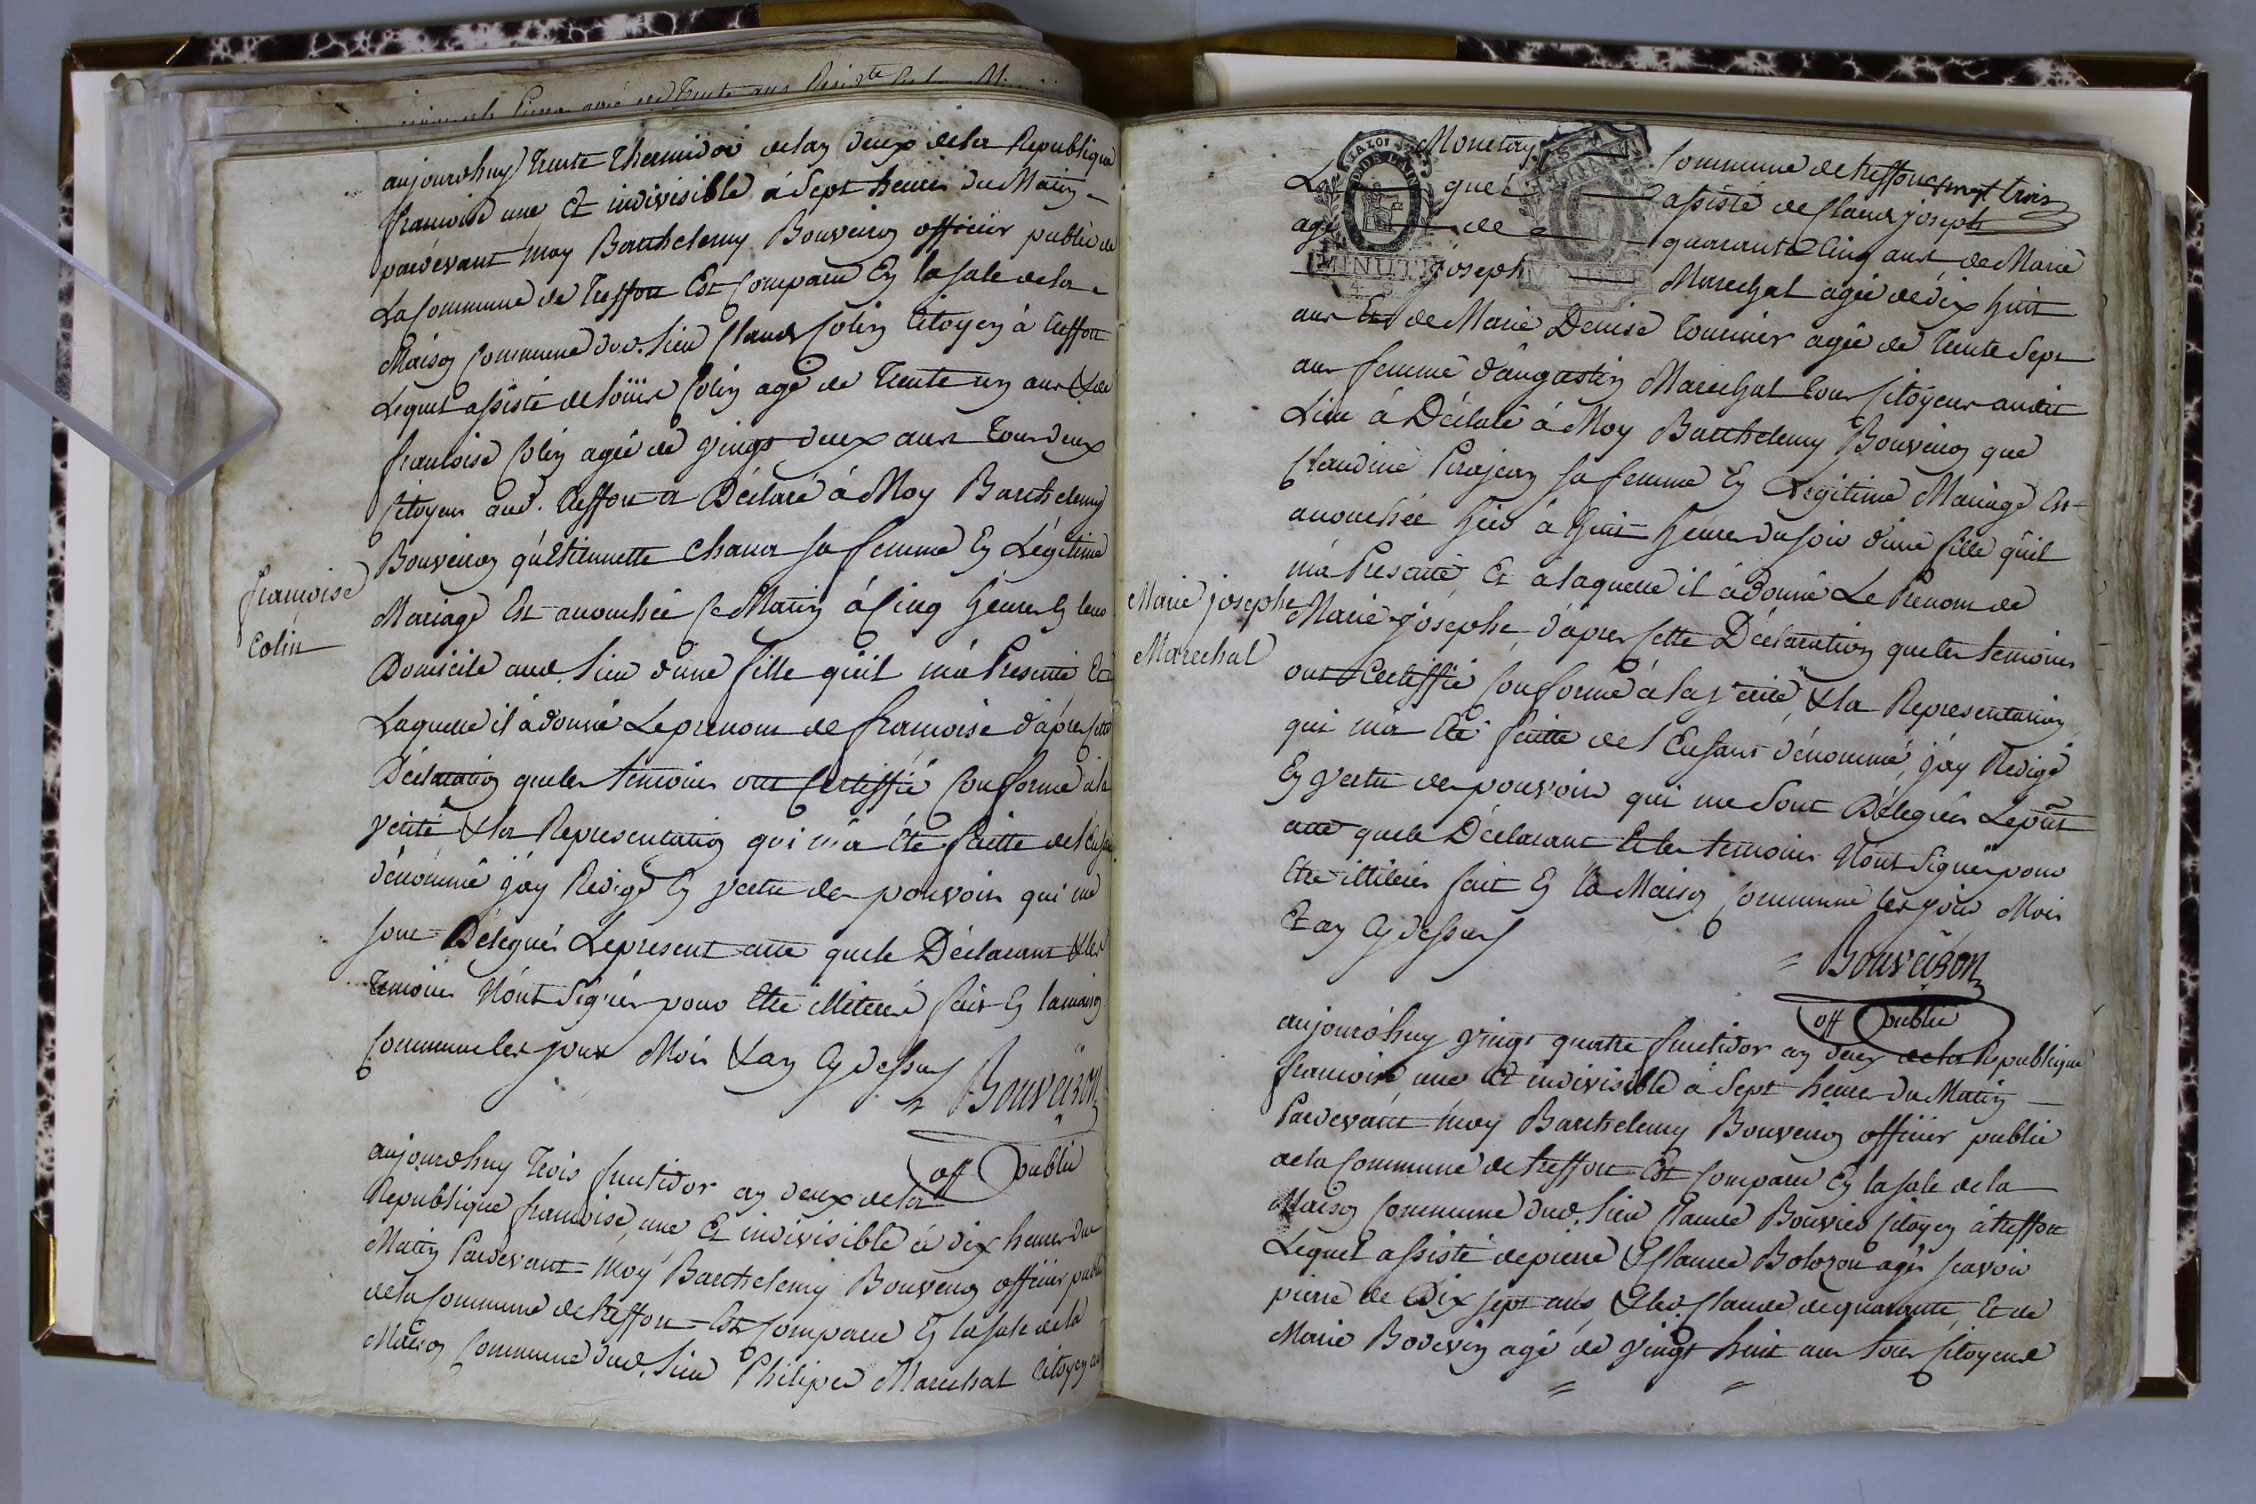 aujourdhuy trente thermidor delan deux dela Republique
francoise une et indivisible à Sept heures du Matin
pardevant moy Barthelemy Bouveiron officier public de
La Commune de treffort Est Comparu En la sale dela
Maison Commune dud. Lieu Claude Colin Citoyen à treffort
Lequel assisté de Colin agé de trente un ans & de
francoise Colin agée de vingt deux ans tous deux
Citoyens aud. treffort a Déclaré à Moy Barthelemy
Bouveiron qu'Etiennette Chanu sa femme En Légitime
Mariage Est acouchée Ce Matin à Cinq heures En leur
Domicile aud. Lieu d'une fille qu'il m'a Presenté Et
Laquelle il a donné Le prenom de francoise d'après cette
Déclaration que les temoins ont Certiffié Conforme à la
verité & la Representation qui m'a été faitte de l'enfant
dénommé j'ay Redigé En vertu des pouvoirs qui me
sont Délegués Le present acte que le Déclarant & les
temoins N'ont Signés pour Etre illiteré fait En la maison
Commune les jour Mois & an Cy dessus
Bouveiron
off public
francoise
Colin
aujourdhuy trois fructidor an deux dela
Republique francoise, une Et indivisible à dix heures du
Matin Pardevant moy Barthelemy Bouveiron officier public
dela Commune de treffort Est Comparu En la sale dela
Maison Commune dud. Lieu Philipe Marechal Citoyen
Monetay Commune de treffort
LA LOI
MINUTE
4 S.
MINUTE
4 S.
Lequel assisté de Claude joseph vingt trois
agé de quarante Cinq ans de Marie
joseph Marechal agée de dix huit
ans Et de Marie Denise tournier agée de trente Sept
ans femme d'augustin Marechal tous Citoyens audit
Lieu à Déclaré à Moy Barthelemy Bouveiron que
Claudine Perojean sa femme En Légitime Mariage Est
acouchée hier à huit heures du soir d'une fille qu'il
m'a Presenté, Et a laquelle il a donné Le Prenom de
Marie josephe, d'après Cette Déclaration que les temoins
ont Certiffié Conforme à la verité, & la Representation
qui m'a Eté faitte de l'Enfant dénommé, j'ay Redigé
En vertu des pouvoirs qui me Sont Délegués Le pnt
acte que le Déclarant Et les temoins N'ont Signés pour
Etre illiterés fait En la Maison Commune les jour Mois
Et an Cy dessus
Bouveiron
off public
Marie josephe
Marechal
aujourd'huy vingt quatre fructidor an deux dela Republique
francoise, une Et indivisible à Sept heures du Matin
Pardevant moy Barthelemy Bouveiron officier public
dela Commune de treffort Est Comparu En la sale dela
Maison Commune dud. Lieu Claude Bouvier Citoyen à treffort
Lequel assisté de pierre & Claude Bolozon agés scavoir
pierre de Dix sept ans, & led. Claude de quarante, Et de
Marie Bodevin agé de vingt huit ans tous Citoyens